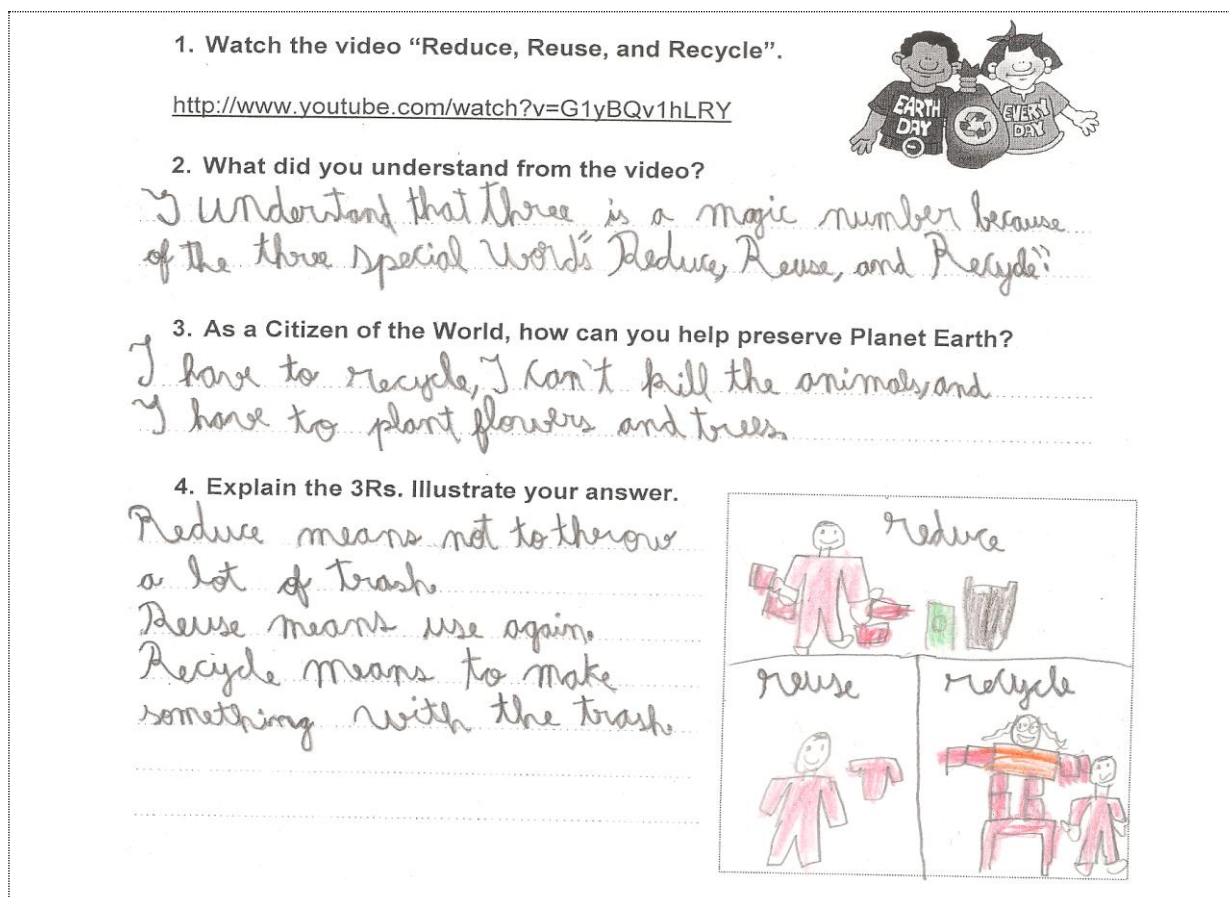 1. Watch the video “Reduce, Reuse, and Recycle”.
http://www.youtube.com/watch?v=G1yBQv1hLRY
EARTH
DAY
EVERY
DAY
2. What did you understand from the video?
I understand that three is a magic number because
of the three special words "Reduce, Reuse, and Recycle".
3. As a Citizen of the World, how can you help preserve Planet Earth?
I have to recycle, I can't kill the animals, and
I have to plant flowers and trees.
4. Explain the 3Rs. Illustrate your answer.
Reduce means not to therow
a lot of trash.
Reuse means use again.
Recycle means to make
something with the trash.
reduce
reuse
recycle